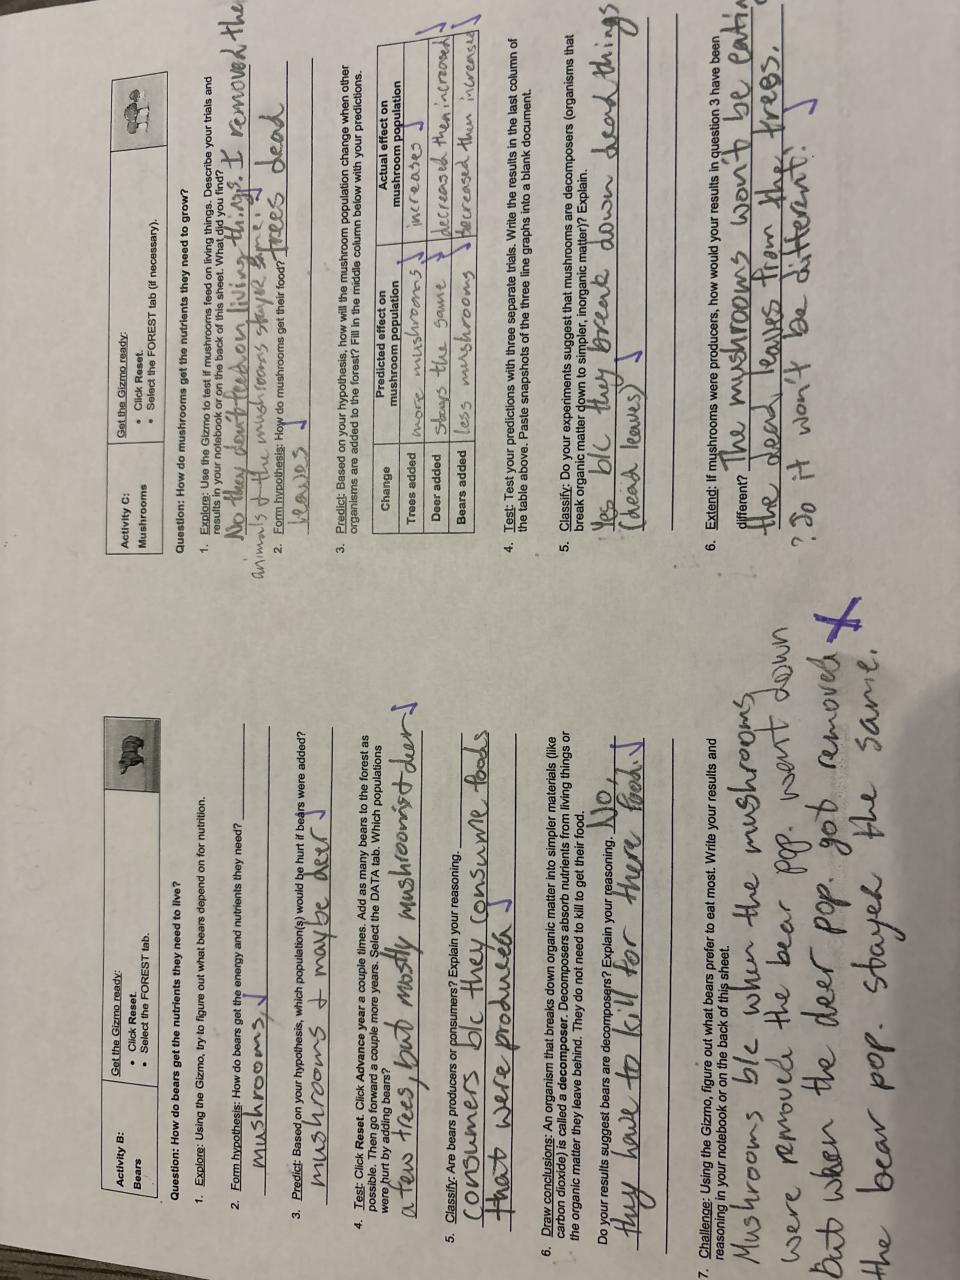 Activity B:
Bears
Get the Gizmo ready:
• Click Reset.
• Select the FOREST tab.
Question: How do bears get the nutrients they need to live?
1. Explore: Using the Gizmo, try to figure out what bears depend on for nutrition.
2. Form hypothesis: How do bears get the energy and nutrients they need?
mushrooms,
3. Predict: Based on your hypothesis, which population(s) would be hurt if bears were added?
mushrooms + maybe deer
4. Test: Click Reset. Click Advance year a couple times. Add as many bears to the forest as
possible. Then go forward a couple more years. Select the DATA tab. Which populations
were hurt by adding bears?
a few trees, but mostly mushrooms + deer
5. Classify: Are bears producers or consumers? Explain your reasoning.
Consumers b/c they consume foods
that were produced
6. Draw conclusions: An organism that breaks down organic matter into simpler materials (like
carbon dioxide) is called a decomposer. Decomposers absorb nutrients from living things or
the organic matter they leave behind. They do not need to kill to get their food.
Do your results suggest bears are decomposers? Explain your reasoning. No,
they have to kill for there food.
7. Challenge: Using the Gizmo, figure out what bears prefer to eat most. Write your results and
reasoning in your notebook or on the back of this sheet.
Mushrooms b/c when the mushrooms
were removed the bear pop. went down
but when the deer pop. got removed X
the bear pop. stayed the same.
Activity C:
Mushrooms
Get the Gizmo ready:
• Click Reset.
• Select the FOREST tab (if necessary).
Question: How do mushrooms get the nutrients they need to grow?
1. Explore: Use the Gizmo to test if mushrooms feed on living things. Describe your trials and
results in your notebook or on the back of this sheet. What did you find?
No they don't feed on living things. I removed the
animals + the mushrooms stayed same
2. Form hypothesis: How do mushrooms get their food? trees dead
leaves
3. Predict: Based on your hypothesis, how will the mushroom population change when other
organisms are added to the forest? Fill in the middle column below with your predictions.
Change Predicted effect on mushroom population Actual effect on mushroom population
Trees added more mushrooms increases
Deer added stays the same decreased then increased
Bears added less mushrooms decreased then increased
4. Test: Test your predictions with three separate trials. Write the results in the last column of
the table above. Paste snapshots of the three line graphs into a blank document.
5. Classify: Do your experiments suggest that mushrooms are decomposers (organisms that
break organic matter down to simpler, inorganic matter)? Explain.
Yes b/c they break down dead things
(dead leaves)
6. Extend: If mushrooms were producers, how would your results in question 3 have been
different? The mushrooms won't be eating
the dead leaves from the trees.
? So it won't be different?